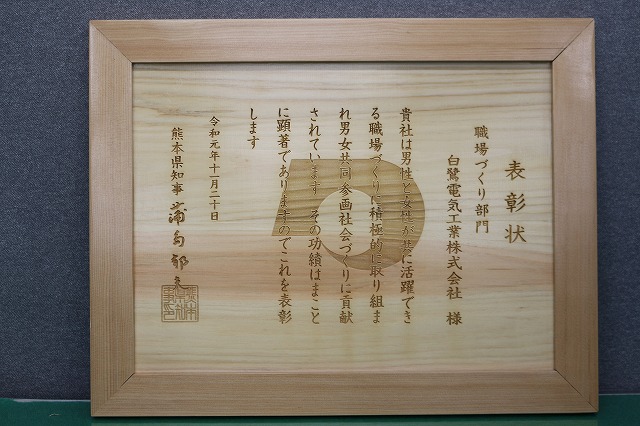 表彰状
職場づくり部門
白鷺電気工業株式会社 様
貴社は男性と女性が共に活躍でき
る職場づくりに積極的に取り組ま
れ男女共同参画社会づくりに貢献
されています その功績はまこと
に顕著でありますのでこれを表彰
します
令和元年十一月二十日
熊本県知事 蒲島郁夫